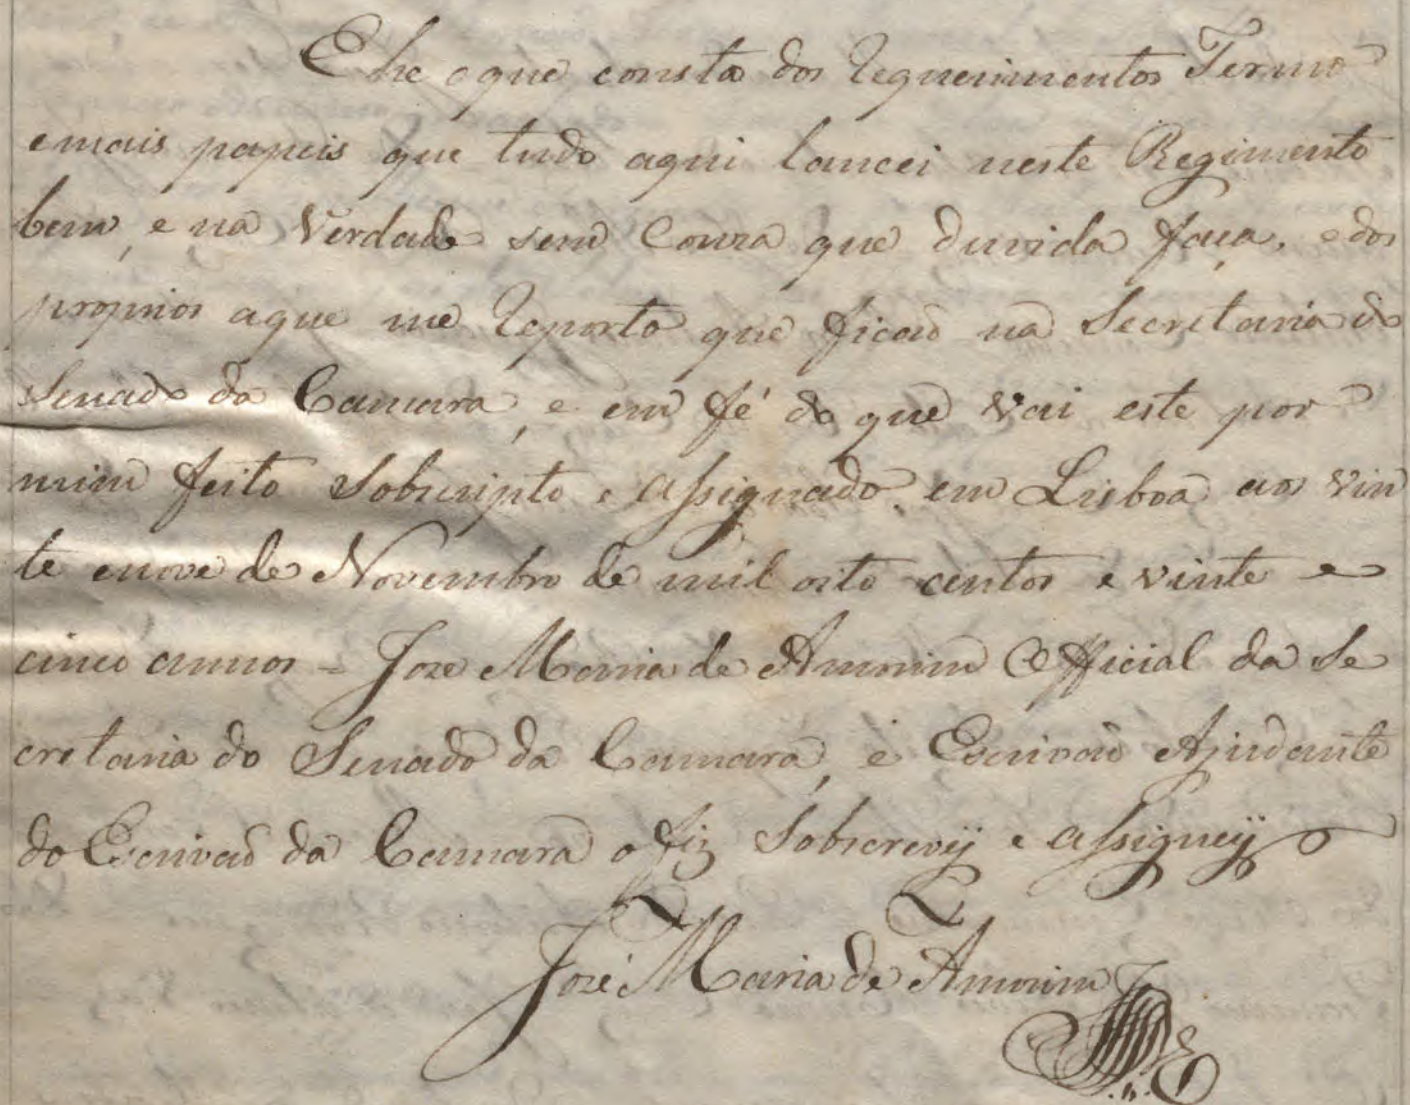 E he o que consta dos Requerimentos Termo
e mais papeis que tudo aqui lancei neste Regimento
bem, e na Verdade sem Couza que duvida faça, e dos
proprios aque me Reporto que ficaõ na Secretaria do
Senado da Camara, e em fé do que vai este por
mim feito Sobscripto e assignado em Lisboa aos vin
te e nove de Novembro de mil oito centos e vinte e
cinco annos = Joze Maria de Amorim Official da Se
cretaria do Senado da Camara, e Escrivaõ Ajudante
do Escrivaõ da Camara o fiz Sobscrevij e assigneij
Jozé Maria de Amorim